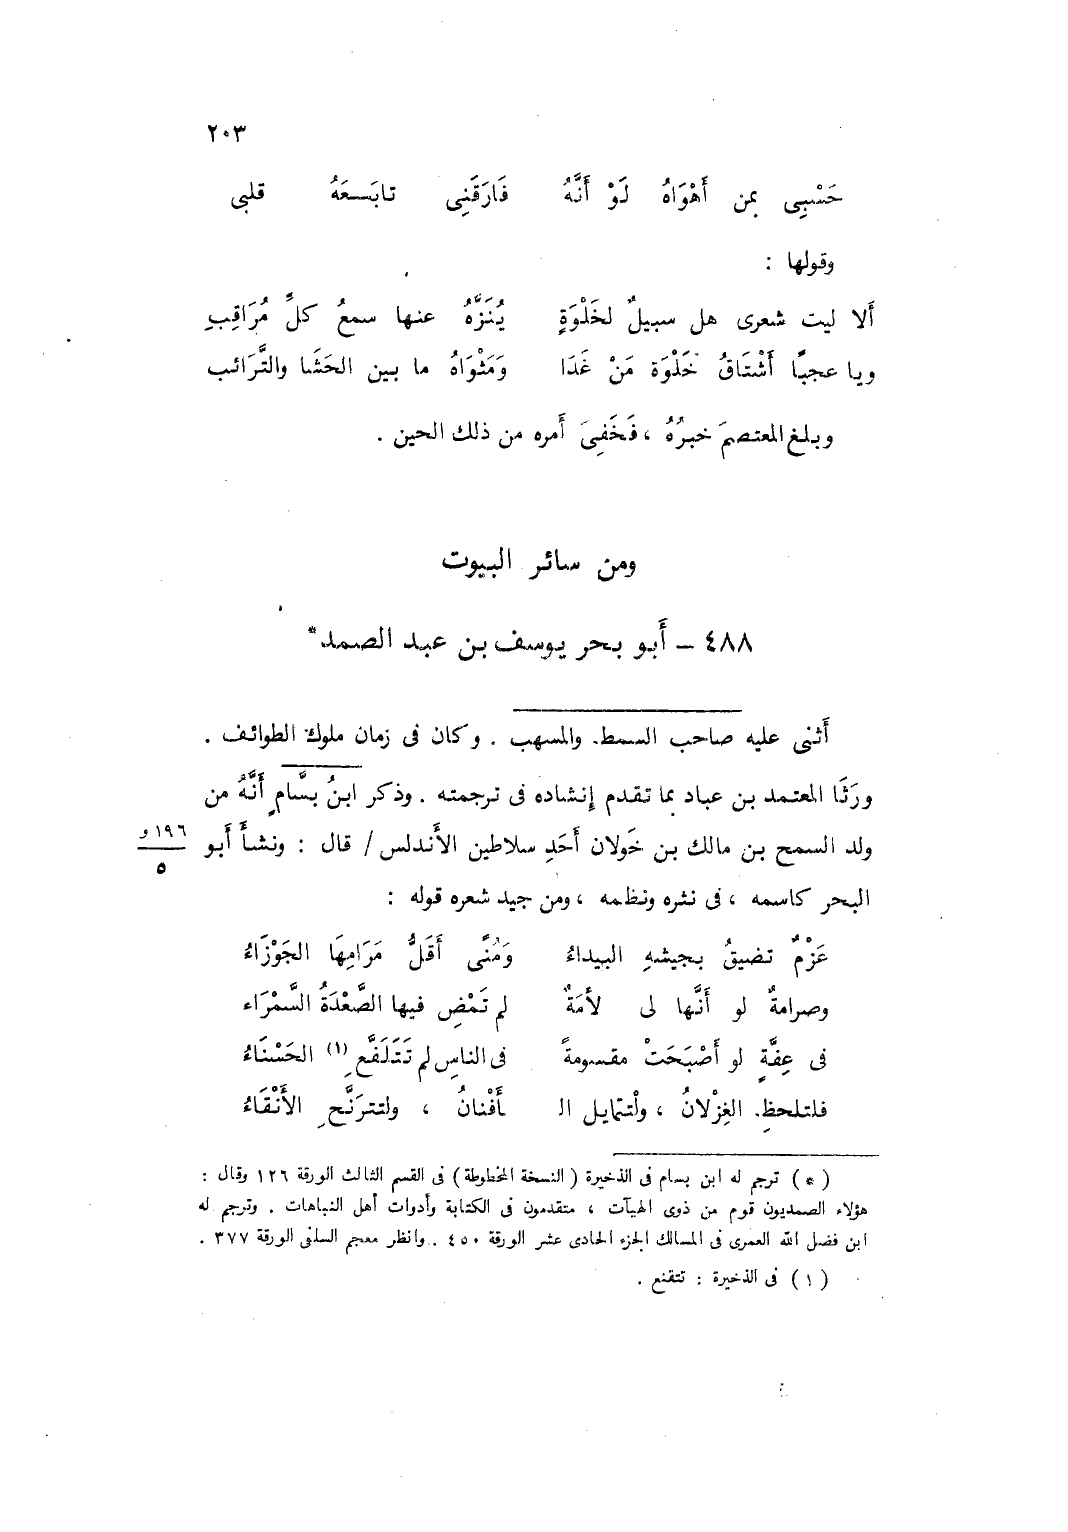 ٢٠٣
حَسْبِى بمن أَهْوَاهُ لَوْ أَنَّهُ فَارَقَنِى تابَسعَهُ قلبى
وقولها :
أَلا ليت شعرى هل سبيلٌ لخَلْوَةٍ يُنَزَّهُ عنها سمعُ كلِّ مُرَاقِبِ
ويا عجبًا أَشْتَاقُ خَلْوَة مَنْ غَدَا وَمَثْوَاهُ ما بين الحَشَا والتَّرَائب
وبلغ المعتصمَ خبرُهُ ، فَخَفِىَ أَمره من ذلك الحين .
ومن سائر البيوت
٤٨٨ – أَبو بحر يوسف بن عبد الصمد*
أَثنى عليه صاحب السمط. والمسهب . وكان فى زمان ملوك الطوائف .
ورَثَا المعتمد بن عباد بما تقدم إِنشاده فى ترجمته . وذكر ابنُ بسَّامٍ أَنَّهُ من
ولد السمح بن مالك بن خَولان أَحَدِ سلاطين الأَندلس / قال : ونشأَ أَبو
١٩٦ و
٥
البحر كاسمه ، فى نثره ونظمه ، ومن جيد شعره قوله :
عَزْمٌ تضيقُ بجيشهِ البيداءُ وَمُنًى أَقَلُّ مَرَامِهَا الجَوْزَاءُ
وصرامةٌ لو أَنَّها لى لأمَةٌ لم تَمْضِ فيها الصَّعْدَةُ السَّمْرَاء
فى عِفَّةٍ لو أَصْبَحَتْ مقسومةً فى الناسِ لم تَتَلَفَّعِ (١) الحَسْنَاءُ
فلتلحظِ. الغِزْلانُ ، ولْتتمايل الـ ـأَفْنانُ ، ولتترنَّحِ الأَنْقَاءُ
( * ) ترجم له ابن بسام فى الذخيرة ( النسخة المخطوطة ) فى القسم الثالث الورقة ١٢٦ وقال :
هؤلاء الصمديون قوم من ذوى الهيآت ، متقدمون فى الكتابة وأدوات أهل النباهات . وترجم له
ابن فضل الله العمرى فى المسالك الجزء الحادى عشر الورقة ٤٥٠ . وانظر معجم السلفى الورقة ٣٧٧ .
( ١ ) فى الذخيرة : تتقنع .